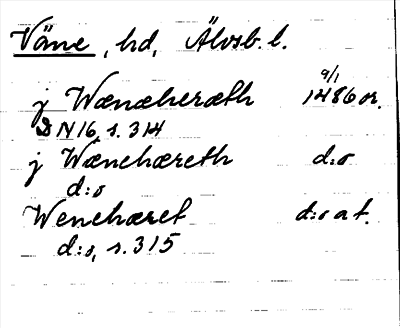 Väne, hd, Älvsb. l.
j Wænæheræth 9/1 1486 or.
DN 16, s. 314
j Wænehæreth d:o
d:o
Wenehæret d:o at.
d:o, s. 315